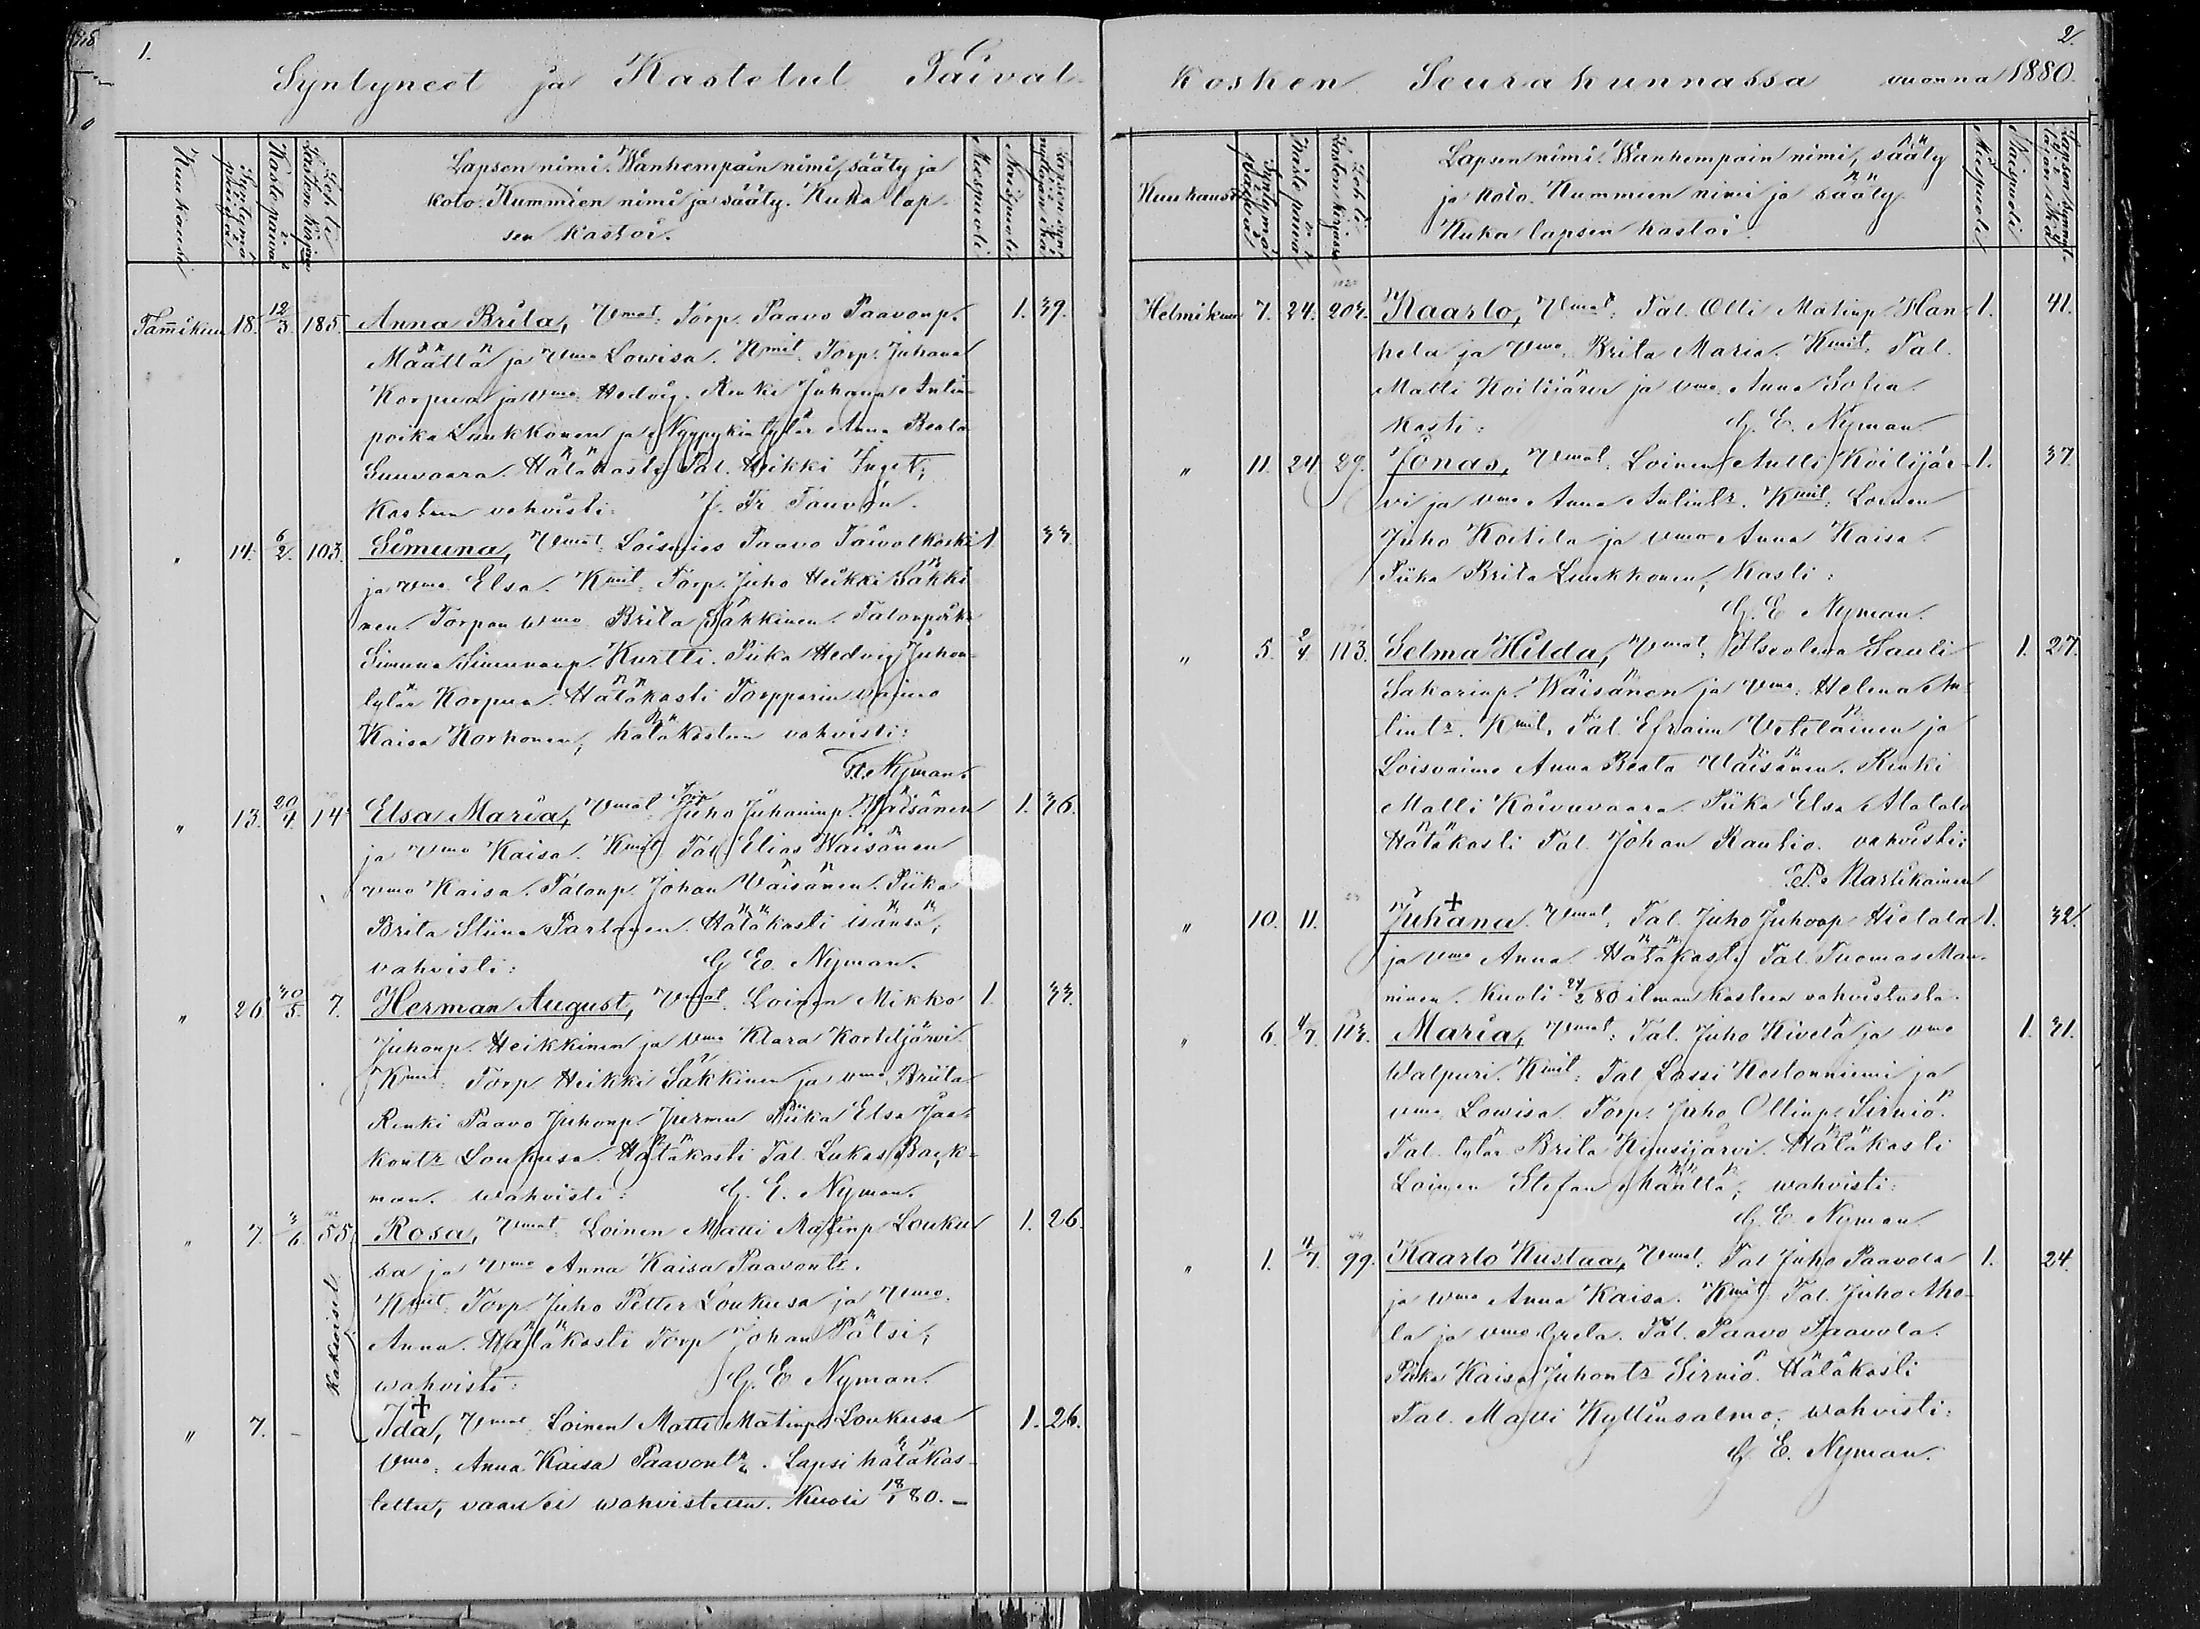 1.
Syntyneet ja Kastetut Taival-
Kuukausi
Syntymä päivä
Kaste päivä
Lehti Lasten kirjassa
Lapsen nimi. Wanhempain nimi, sääty ja
koto. Kummien nimi ja sääty. Kuka lap-
sen kastoi.
Miespuoli
Naispuoli
Tammikuu 18. 12/3 185. Anna Brita, Vmat: Torp. Paavo Paavonp. 1. 39.
Määttä ja Vmo Lowisa. Kmit. Torp. Juhana
Korpua ja Vmo Hedvig. Renki Juhana Antin-
poika Lunkkonen ja tytär Anna Beata
Suuvaara. Hätäkasti Tal. Heikki Inget;
Kasteen vahvisti: J. Fr. Tauvón.
" 14. 6/2 103. Simuna, Vmat: Loismies Paavo Taivalkoski 1. 33.
ja Vmo Elsa. Kmit. Torp. Juho Heikki Säkki-
nen. Torpan Wmo Brita Säkkinen. Talonpoika
Simuna Simunanp. Kurtti. Piika Hedvig Juhon-
tytär Korpua. Hätäkasti Torpparin vaimo
Kaisa Korhonen, hätäkasteen vahvisti:
Nyman.
" 13. 20/4 14. Elsa Maria, Vmat Torp. Juho Juhaninp. Väisänen 1. 36.
ja Vmo Kaisa. Kmit. Tal. Elias Wäisänen
vmo Kaisa. Talonp. Johan Väisänen. Piika
Brita Stiina Partanen. Hätäkasti isänsä,
vahvisti: G. E. Nyman.
" 26. 30/5 7. Herman August, Vmat. Loinen Mikko 1. 33.
Juhonp. Heikkinen ja Vmo Klara Kortetjärvi.
Kmit: Torp. Heikki Säkkinen ja vmo Briita.
Renki Paavo Juhonp. Jurmu Piika Elsa Jaa-
kontr Loukusa. Hätäkasti Tal. Lukas Back-
man. wahvisti: G. E. Nyman.
" 7. 3/6 55. Rosa, Vmat: Loinen Matti Matinp. Louku- 1. 26.
sa ja Vmo Anna Kaisa Paavontr.
Kmit. Torp. Juho Petter Loukusa ja Vmo.
Anna. Hätäkasti Torp. Johan Pätsi,
wahvisti: G. E. Nyman.
Kaksoiset.
" 7. - Ida, Vmat. Loinen Matti Matinp. Loukusa 1. 26.
Vmo: Anna Kaisa Paavontr. Lapsi hätäkas-
tettu, vaan ei wahvistettu. Kuoli 18/1 80. -
2.
kosken Seurakunnassa vuonna 1880.
Kuukausi
Syntymä päivä
Kaste päivä
Lehti Lastenkirjassa
Lapsen nimi. Wanhempain nimi, sääty
ja koto. Kummien nimi ja sääty.
Kuka lapsen kastoi.
Miespuoli
Naispuoli
Helmikuu 7. 24. 203. Kaarlo, Vmat: Tal. Olli Matinp. Han- 1. 41.
hela ja Vmo. Brita Maria. Kmit. Tal.
Matti Koitijärvi ja vmo. Anna Sofia.
Kasti: G. E. Nyman.
" 11. 24 29. Jonas, Vmat. Loinen Antti Koitijär- 1. 37.
vi ja vmo Anna Antintr. Kmit. Loinen
Juho Koitila ja vmo Anna Kaisa.
Piika Brita Lunkkonen, Kasti:
G. E. Nyman.
" 5. 2/4 113. Selma Hilda, Vmat. Itsellinen Sauli 1. 27.
Sakarinp. Wäisänen ja Vmo. Helena An-
tintr. Kmit. Tal. Efraim Veteläinen ja
Loisvaimo Anna Beata Väisänen. Renki
Matti Koivuvaara. Piika Elsa Alatalo
Hätäkasti Tal. Johan Rautio. vahvisti:
E. P. Martikainen
" 10. 11. Juhana. Vmat. Tal. Juho Juhonp. Hietala 1. 32.
ja vmo Anna. Hätäkasti Tal. Tuomas Man-
ninen. Kuoli 24/2 80 ilman kasteen vahvistusta.
" 6. 4/7 113. Maria, Vmat: Tal. Juho Kivelä ja vmo 1. 31.
Walpuri. Kmit: Tal. Lassi Kestonniemi ja
vmo Lowisa. Torp. Juho Ollinp. Sirniö.
Tal. tytär Brita Kynsijärvi. Hätäkasti
Loinen Stefan Määttä, wahvisti:
G. E. Nyman.
" 1. 4/7 99. Kaarlo Kustaa, Vmat. Tal. Juho Paavola 1. 24.
ja Wmo Anna Kaisa. Kmit. Tal. Juho Aho-
la ja vmo Greta. Tal. Paavo Paavola.
Piika Kaisa Juhontr Sirniö. Hätäkasti
Tal. Matti Kyttinsalmo; wahvisti:
G. E. Nyman.